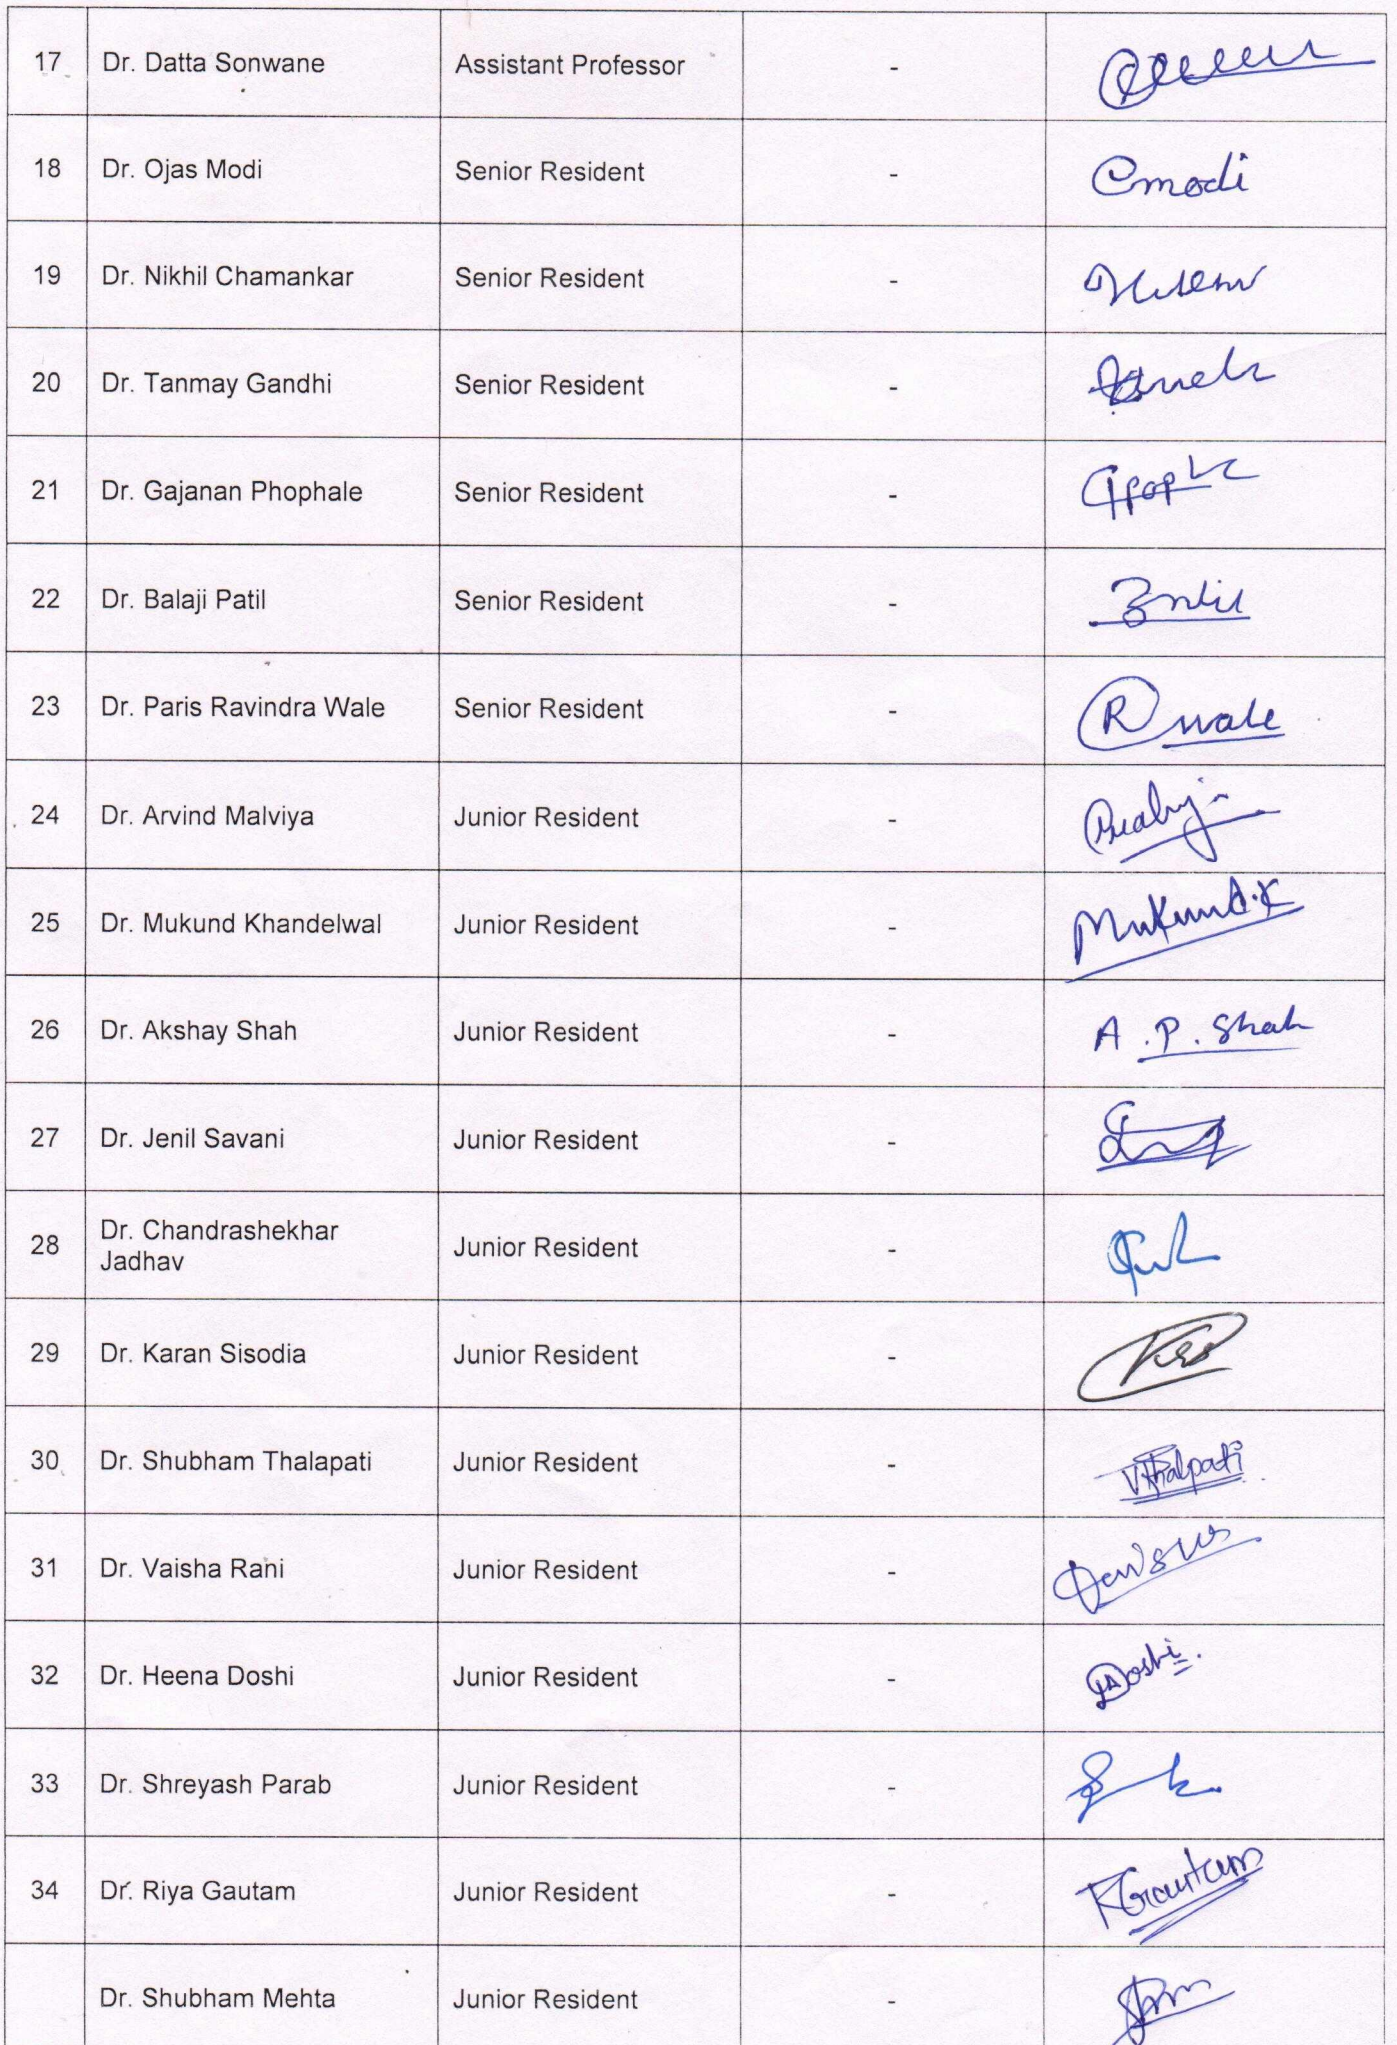 17 Dr. Datta Sonwane Assistant Professor -
18 Dr. Ojas Modi Senior Resident - Omodi
19 Dr. Nikhil Chamankar Senior Resident -
20 Dr. Tanmay Gandhi Senior Resident -
21 Dr. Gajanan Phophale Senior Resident -
22 Dr. Balaji Patil Senior Resident -
23 Dr. Paris Ravindra Wale Senior Resident - R wale
24 Dr. Arvind Malviya Junior Resident -
25 Dr. Mukund Khandelwal Junior Resident - Mukund.K
26 Dr. Akshay Shah Junior Resident - A.P. Shah
27 Dr. Jenil Savani Junior Resident -
28 Dr. Chandrashekhar
Jadhav Junior Resident -
29 Dr. Karan Sisodia Junior Resident -
30 Dr. Shubham Thalapati Junior Resident -
31 Dr. Vaisha Rani Junior Resident -
32 Dr. Heena Doshi Junior Resident - Doshi
33 Dr. Shreyash Parab Junior Resident -
34 Dr. Riya Gautam Junior Resident - RGautam
Dr. Shubham Mehta Junior Resident -